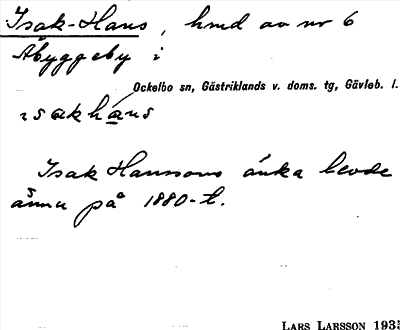 Isak-Hans, hmd av nr 6
Åbyggeby i
Ockelbo sn, Gästriklands v. doms. tg, Gävleb. l.
isakhans
Isak Hanssons änka levde
ännu på 1880-t.
LARS LARSSON 1935